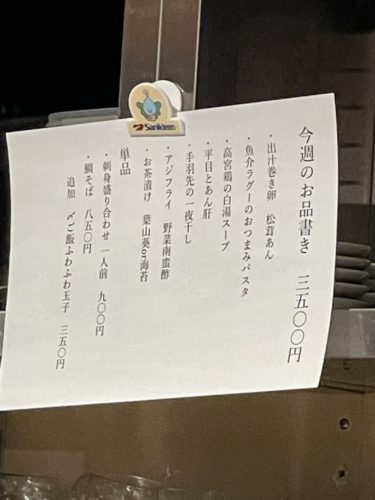 今週のお品書き　三五〇〇円
・出汁巻き卵　松茸あん
・魚介ラグーのおつまみパスタ
・高宮鶏の白湯スープ
・平目とあん肝
・手羽先の一夜干し
・アジフライ　野菜南蛮酢
・お茶漬け　葉山葵or海苔
単品
・刺身盛り合わせ一人前　九〇〇円
・鯛そば　八五〇円
追加　〆ご飯ふわふわ玉子　三五〇円
Sanikleen